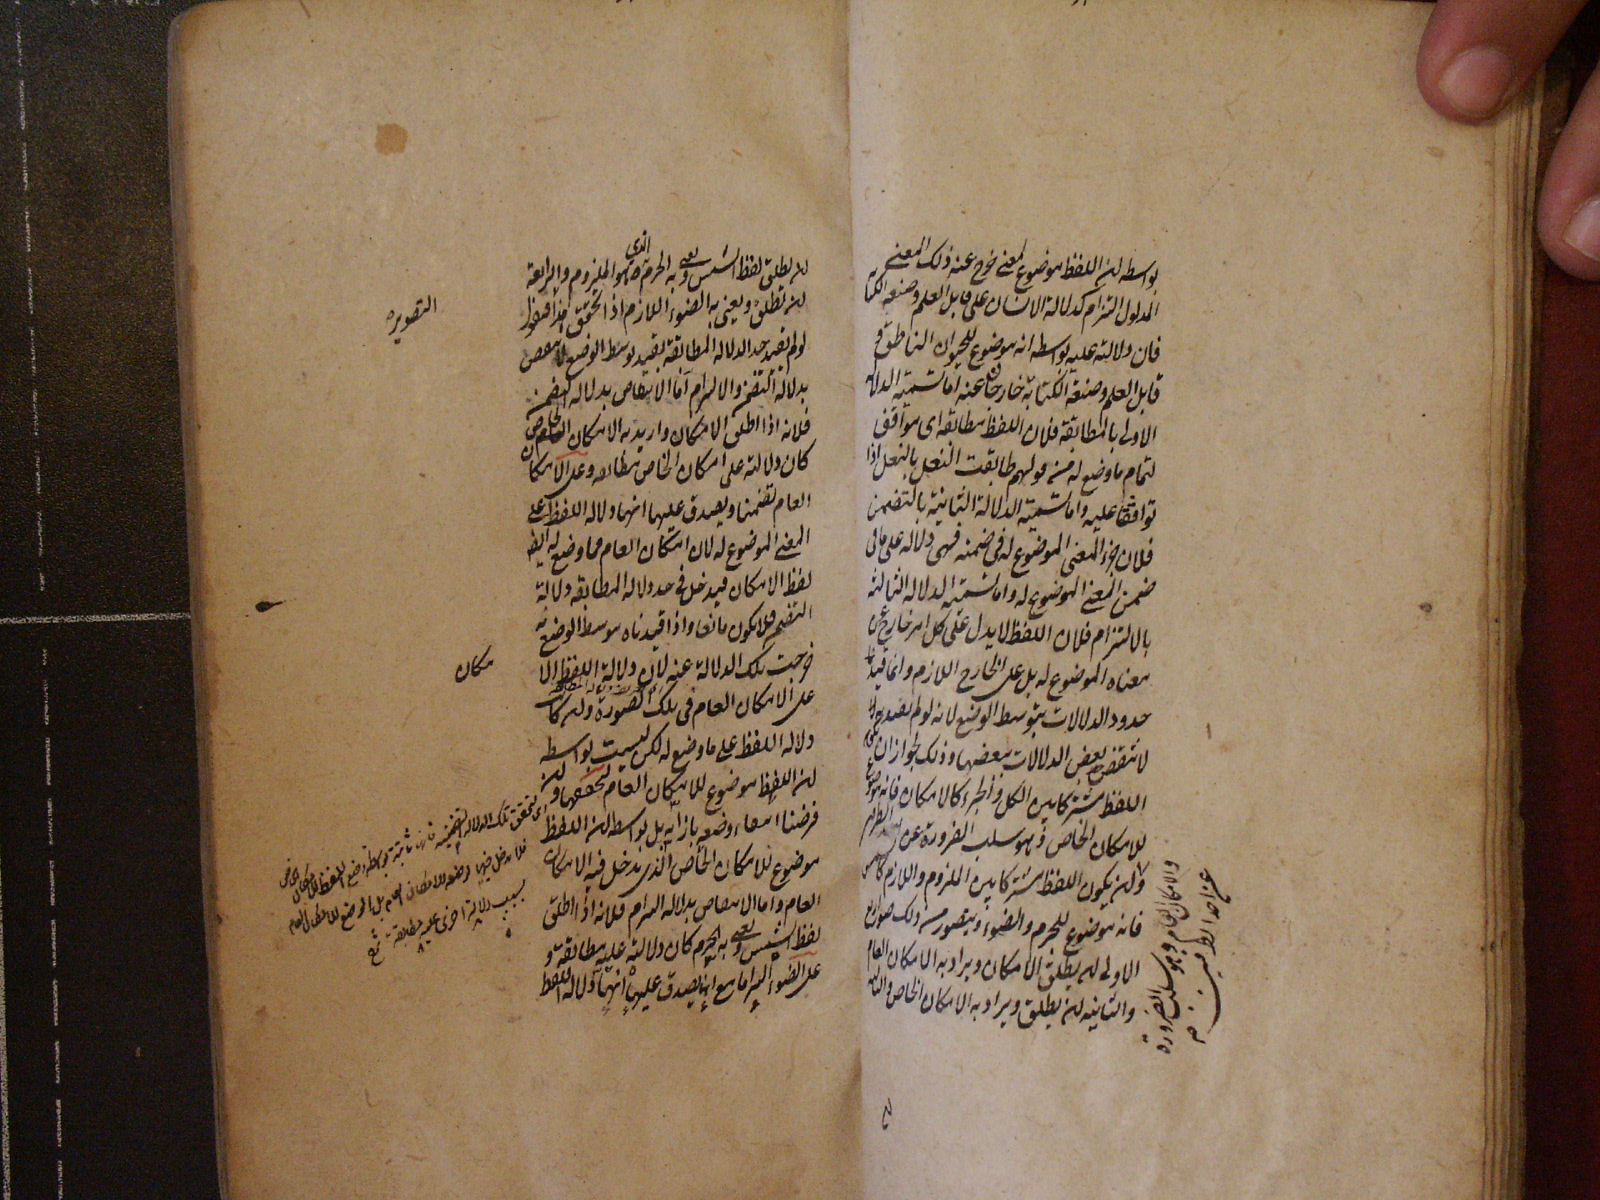 بواسطة ان اللفظ موضوع لمعنى خرج عنه ذلك المعنى
المدلول التزام كدلالة الانسان على قابل العلم وصنعة الكتابة
فان دلالته عليه بواسطة انه موضوع للحيوان الناطق و
قابل العلم وصنعة الكتابة خارجان عنه اما تسمية الدلالة
الاولى بالمطابقة فلان اللفظ مطابقة اى موافق
لتمام ما وضع له من قولهم طابقت النعل بالنعل اذا
توافقتا عليه واما تسمية الدلالة الثانية بالتضمن
فلان جزء المعنى الموضوع له فى ضمنه فهى دلالة على ما فى
ضمن المعنى الموضوع له واما تسمية الدلالة الثالثة
بالالتزام فلان اللفظ لا يدل على كل امر خارج عن
معناه الموضوع له بل على الخارج اللازم وانما قيد
حدود الدلالات بتوسط الوضع لانه لو لم يقيد به
لانتقض بعض الدلالات ببعضها وذلك لجواز ان يكون
اللفظ مشتركا بين الكل والجزء كالامكان فانه موضوع
للامكان الخاص وهو سلب الضرورة عن الطرفين
ولان يكون اللفظ مشتركا بين الملزوم واللازم كالشمس
فانه موضوع للجرم والضوء ويتصور من ذلك صور اربع
الاولى ان يطلق الامكان ويراد به الامكان العام
والثانية ان يطلق ويراد به الامكان الخاص والثالثة
والامكان العام وهو سلب الضرورة
عن احد الطرفين
ان يطلق لفظ الشمس ويعنى به الجرم الذى هو الملزوم والرابعة
ان تطلق ويعنى به الضوء اللازم اذا تحقق هذا فنقول
لو لم يقيد حد الدلالة المطابقة بقيد توسط الوضع لانتقض
بدلالة التضمن والالتزام اما الانتقاض بدلالة التضمن
فلانه اذا اطلق الامكان واريد به الامكان الخاص
كان دلالته على امكان الخاص مطابقة وعلى الامكان
العام تضمنا ويصدق عليها انها دلالة اللفظ على
المعنى الموضوع له لان امكان العام مما وضع له ايضا
لفظ الامكان فيدخل فى حد دلالة المطابقة ودلالة
التضمن فلا يكون مانعا واذا قيدناه بتوسط الوضع
خرجت تلك الدلالة عنه لان دلالة اللفظ
على الامكان العام فى تلك الصورة وان كان
دلالة اللفظ على ما وضع له لكن ليست بواسطة
ان اللفظ موضوع للامكان العام لتحققها وان
فرضنا انتفاء وضعه بازائه بل بواسطة ان اللفظ
موضوع للامكان الخاص الذى يدخل فيه الامكان
العام واما الانتقاض بدلالة التزام فلانه اذا اطلق
لفظ الشمس ويعنى به الجرم كان دلالته عليه مطابقة و
على الضوء التزاما مع انها يصدق عليها انها دلالة اللفظ
التصوير
مكان